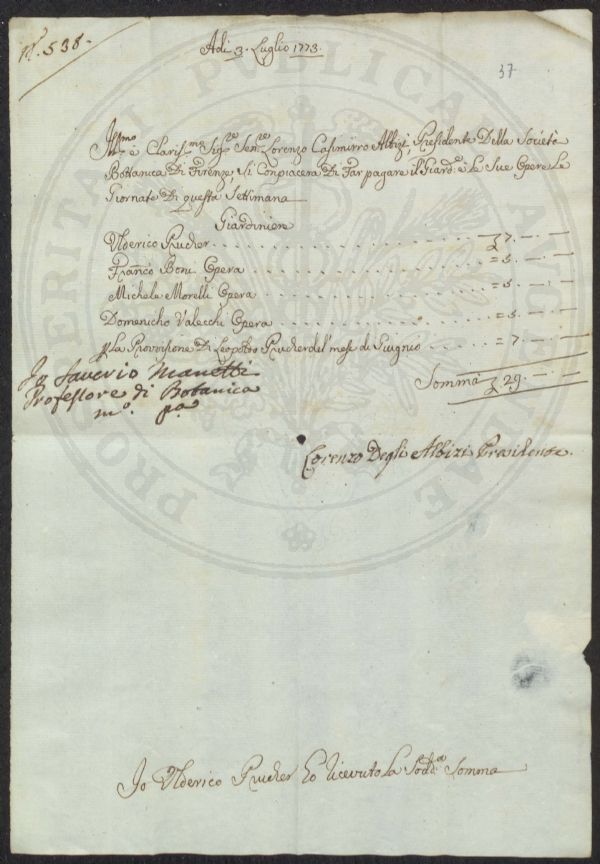 N.° 538.
Adì 3. Luglio 1773.
37
Ill.mo e Clariss.mo Sig.re Sen.re Lorenzo Casimirro Albizi Presidente Della Società
Bottanica Di Firenze, Si Conpiacerà Di Far pagare il Giard.e e Le Sue Opere Le
Giornate Di questa Settimana
Giardiniere
Ulderico Prucher 7. — —
Franco Boni Opera = 5. — —
Michele Morelli Opera = 5
Domenicho Valecchi Opera = 5. — —
La Provisione Di Leopoldo Prucher del' mese di Giugnio = 7. — —
Somma 29. — —
Io Saverio Manetti
Professore di Botanica
m.o p.a
Lorenzo Degli Albizi Presidente.
Io Ulderico Prucher ho ricevuto La Sodd.a Somma
PROSPERITATI PUBLICAE AUGENDAE